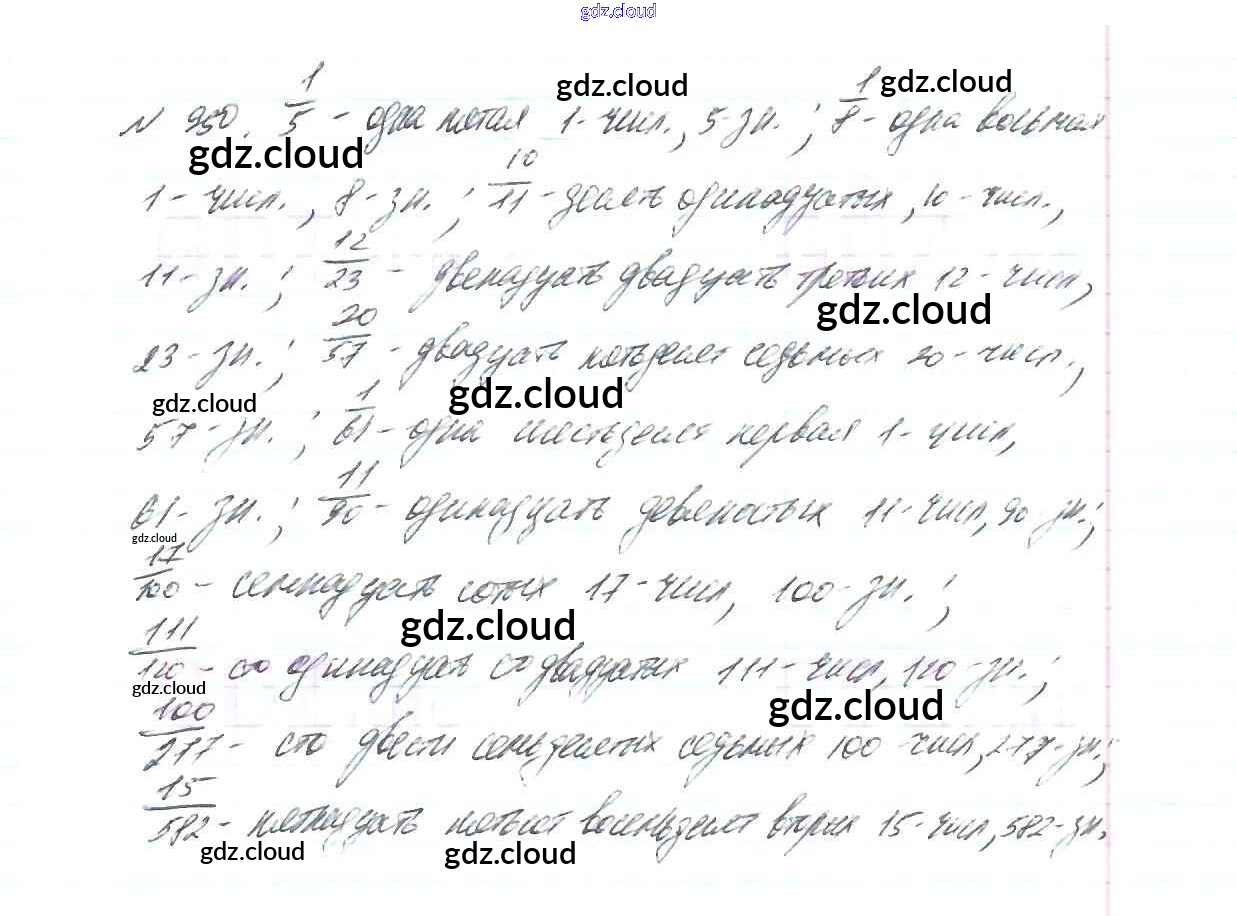 gdz.cloud
N 950. 1/5 - одна пятая 1-числ., 5-зн.; 1/8 - одна восьмая
1-числ., 8-зн.; 10/11 - десять одинадцатых, 10-числ.,
11-зн.; 12/23 - двенадцать двадцать третьих 12-числ,
23-зн.; 20/57 - двадцать пятьдесят седьмых 20-числ.,
57-зн.; 1/61 - одна шестьдесят первая 1-числ,
61-зн.; 11/90 - одинадцать девяностых 11-числ, 90-зн.;
17/100 - семнадцать сотых 17-числ, 100-зн.;
111/120 - сто одинадцать сто двадцатых 111-числ, 120-зн.;
100/277 - сто двести семьдесятых седьмых 100-числ, 277-зн.;
15/582 - пятнадцать пятьсот восемьдесят вторых 15-числ, 582-зн.
gdz.cloud
gdz.cloud
gdz.cloud
gdz.cloud
gdz.cloud
gdz.cloud
gdz.cloud
gdz.cloud
gdz.cloud
gdz.cloud
gdz.cloud
gdz.cloud